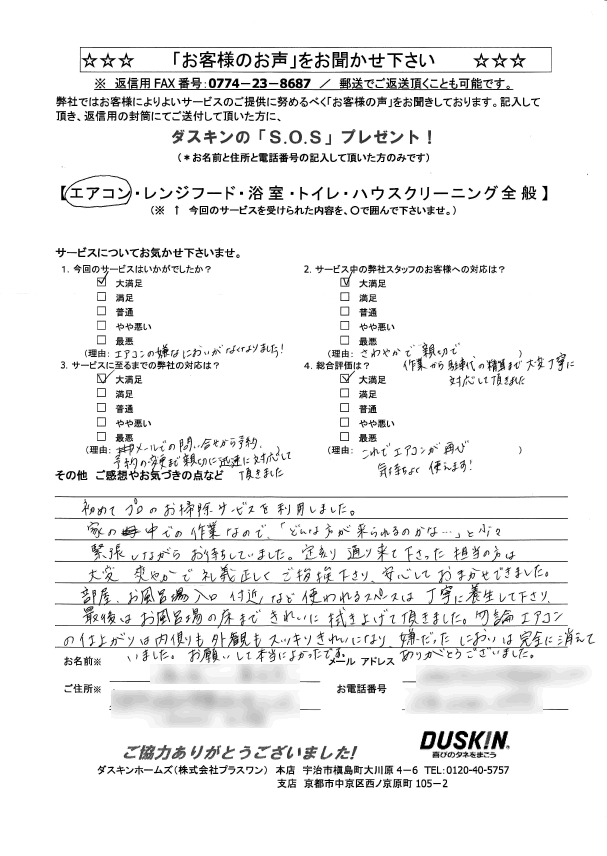 ☆☆☆ 「お客様のお声」をお聞かせ下さい ☆☆☆
※ 返信用FAX番号:0774−23−8687 / 郵送でご返送頂くことも可能です。
弊社ではお客様によりよいサービスのご提供に努めるべく「お客様の声」をお聞きしております。記入して
頂き、返信用の封筒にてご送付して頂いた方に、
ダスキンの「S.O.S」プレゼント!
(*お名前と住所と電話番号の記入して頂いた方のみです)
【エアコン・レンジフード・浴室・トイレ・ハウスクリーニング全般】
(※ ↑ 今回のサービスを受けられた内容を、○で囲んで下さいませ。)
サービスについてお気かせ下さいませ。
1. 今回のサービスはいかがでしたか?
大満足
満足
普通
やや悪い
最悪
(理由: エアコンの嫌なにおいがなくなりました!
2. サービス中の弊社スタッフのお客様への対応は?
大満足
満足
普通
やや悪い
最悪
(理由: さわやかで親切で )
作業から駐車代の精算まで大変丁寧に
対応して頂きました
3. サービスに至るまでの弊社の対応は?
大満足
満足
普通
やや悪い
最悪
(理由: メールでの問い合せから予約、 )
予約の変更まで親切に迅速に対応して
頂きました
4. 総合評価は?
大満足
満足
普通
やや悪い
最悪
(理由: これでエアコンが再び )
気持ちよく使えます!
その他 ご感想やお気づきの点など
初めてプロのお掃除サービスを利用しました。
家の中での作業なので、「どんな方が来られるのかな…」と少々
緊張しながらお待ちしていました。定刻通り来て下さった担当の方は
大変爽やかで礼義正しくご挨拶下さり、安心しておまかせできました。
部屋、お風呂場入口付近など使われるスペースは丁寧に養生して下り、
最後はお風呂場の床まできれいに拭き上げて頂きました。勿論エアコン
の仕上がりは内側りも外観もスッキリきれいになり、嫌だったにおいは完全に消えて
いました。お願いして本当によかったです。 ありがとうございました。
お名前※
メール アドレス
ご住所※
お電話番号
ご協力ありがとうございました!
DUSKIN
喜びのタネをまこう
ダスキンホームズ(株式会社プラスワン) 本店 宇治市槇島町大川原4−6 TEL:0120-40-5757
支店 京都市中京区西ノ京原町105−2